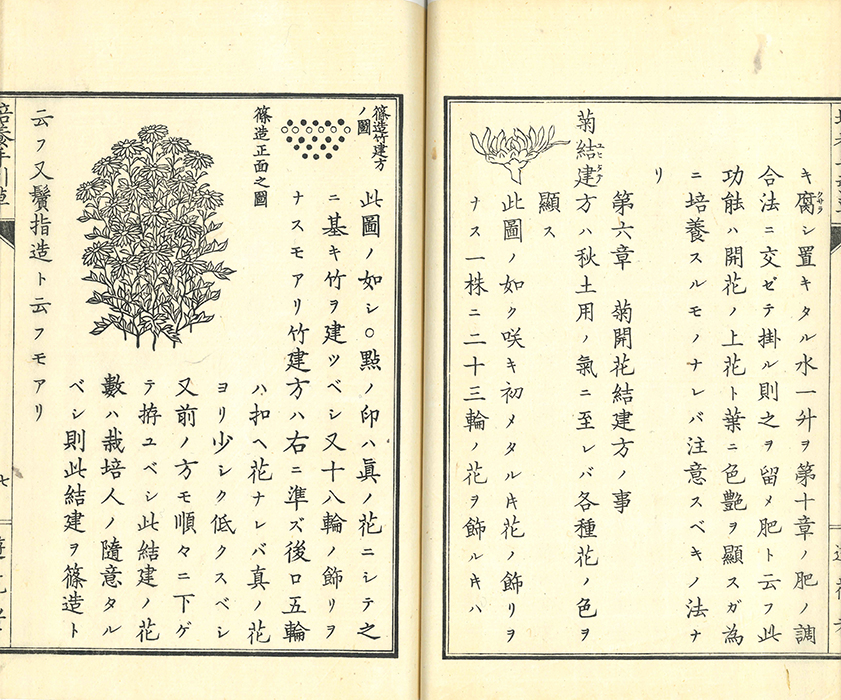 キ腐シ置キタル水一升ヲ第十章ノ肥ノ調
クサラ
合法ニ交ゼテ掛ル則之ヲ留メ肥ト云フ此
功能ハ開花ノ上花ト葉ニ色艶ヲ顯スガ為
ニ培養スルモノナレバ注意スベキノ法ナ
リ
第六章 菊開花結建方ノ事
菊結建方ハ秋土用ノ氣ニ至レバ各種花ノ色ヲ
ユヒタテ
顯ス
此圖ノ如ク咲キ初メタル𪜈花ノ飾リヲ
ナス一株ニ二十三輪ノ花ヲ飾ル𪜈ハ
篠造竹建方
ノ圖
此圖ノ如シ○點ノ印ハ眞ノ花ニシテ之
ニ基キ竹ヲ建ツベシ又十八輪ノ飾リヲ
ナスモアリ竹建方ハ右ニ準ズ後ロ五輪
篠造正面之圖
ハ扣ヘ花ナレバ真ノ花
ヨリ少シク低クスベシ
又前ノ方モ順々ニ下ゲ
テ拵ユベシ此結建ノ花
數ハ栽培人ノ隨意タル
ベシ則此結建ヲ篠造ト
云フ又鬢指造ト云フモアリ
七